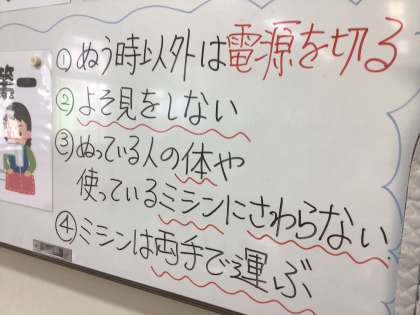 第一
①ぬう時以外は電源を切る
②よそ見をしない
③ぬっている人の体や
使っているミシンにさわらない
④ミシンは両手で運ぶ